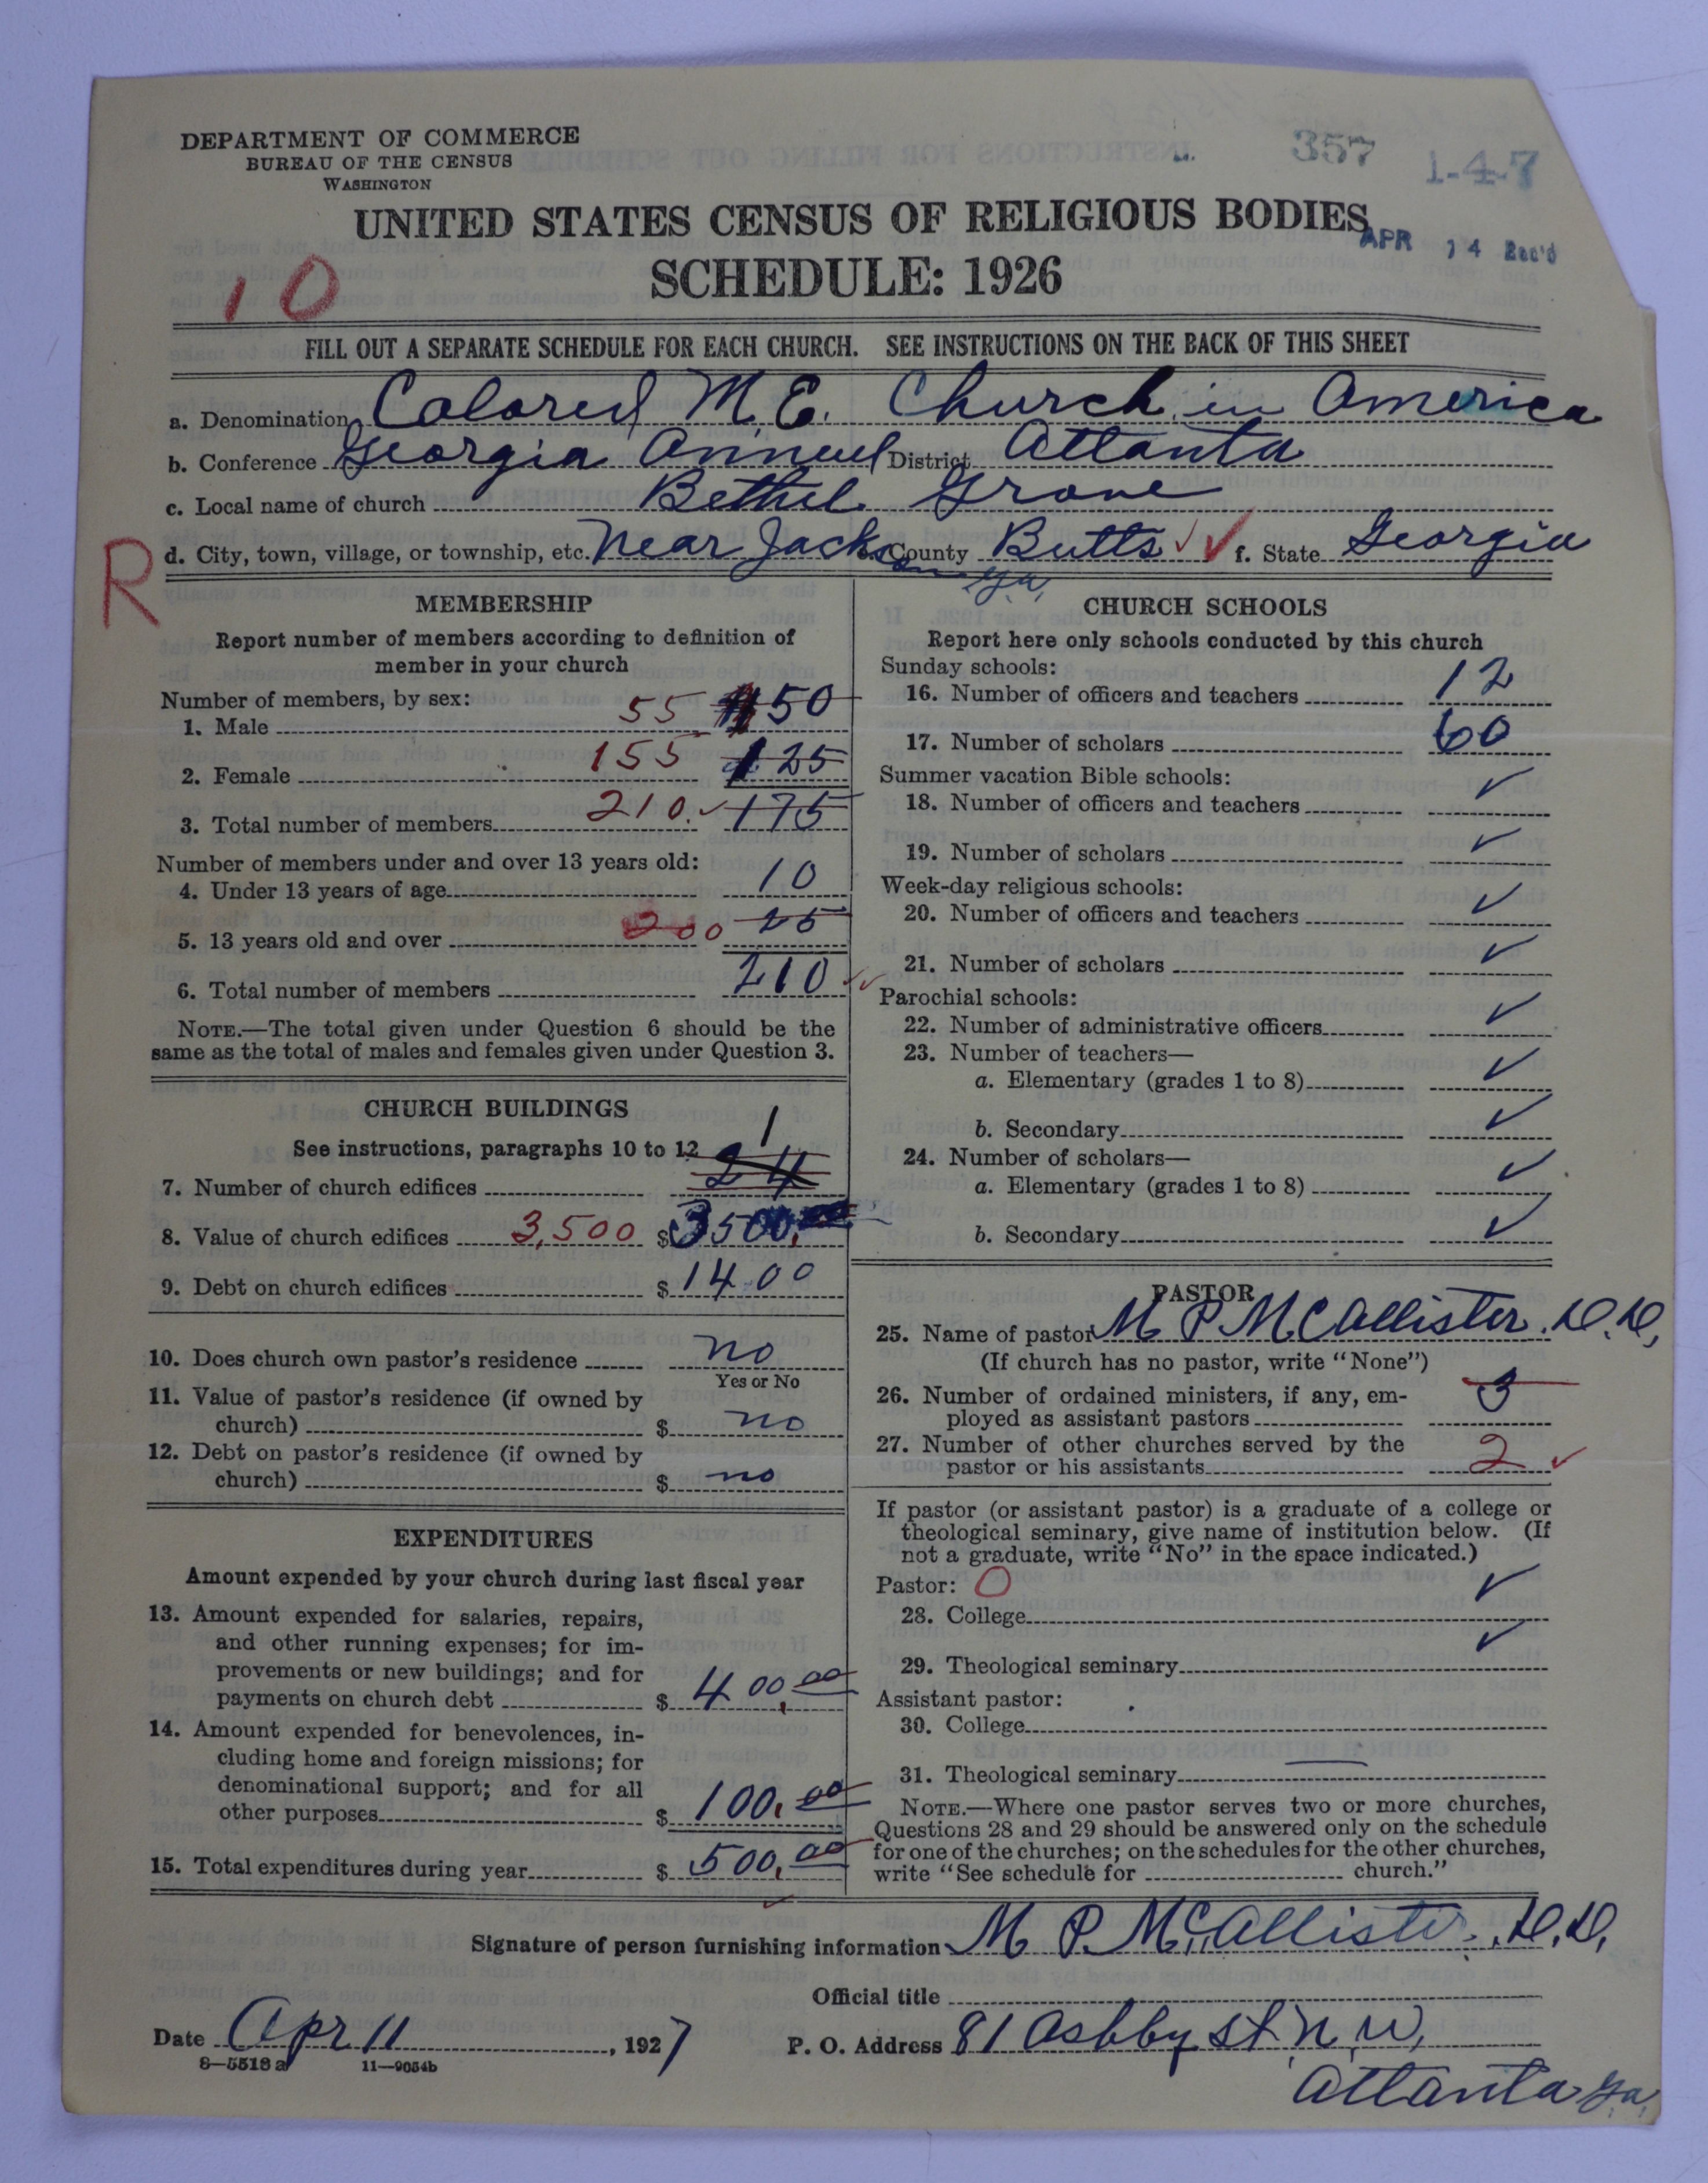 DEPARTMENT OF COMMERCE
BUREAU OF THE CENSUS
WASHINGTON
357
1-4-7
UNITED STATES CENSUS OF RELIGIOUS BODIES
APR 14 Rec'd
SCHEDULE: 1926
10
FILL OUT A SEPARATE SCHEDULE FOR EACH CHURCH. SEE INSTRUCTIONS ON THE BACK OF THIS SHEET
a. Denomination Colored M. E. Church in America
b. Conference Georgia Annual District Atlanta
c. Local name of church Bethel Grove
R
d. City, town, village, or township, etc. Near Jackson Ga, e. County Butts f. State Georgia
MEMBERSHIP
Report number of members according to definition of
member in your church
Number of members, by sex:
1. Male 55 50
2. Female 155 125
3. Total number of members 210. 175
Number of members under and over 13 years old:
4. Under 13 years of age 10
5. 13 years old and over 200 25
6. Total number of members 210
NOTE.—The total given under Question 6 should be the
same as the total of males and females given under Question 3.
CHURCH BUILDINGS
See instructions, paragraphs 10 to 12
7. Number of church edifices 1 24
8. Value of church edifices 3,500 $3500.
9. Debt on church edifices $1400
10. Does church own pastor's residence no
Yes or No
11. Value of pastor's residence (if owned by
church) $ no
12. Debt on pastor's residence (if owned by
church) $ no
EXPENDITURES
Amount expended by your church during last fiscal year
13. Amount expended for salaries, repairs,
and other running expenses; for im-
provements or new buildings; and for
payments on church debt $ 400.00
14. Amount expended for benevolences, in-
cluding home and foreign missions; for
denominational support; and for all
other purposes $ 100.00
15. Total expenditures during year $ 500.00
CHURCH SCHOOLS
Report here only schools conducted by this church
Sunday schools:
16. Number of officers and teachers 12
17. Number of scholars 60
Summer vacation Bible schools:
18. Number of officers and teachers ✓
19. Number of scholars ✓
Week-day religious schools:
20. Number of officers and teachers ✓
21. Number of scholars ✓
Parochial schools:
22. Number of administrative officers ✓
23. Number of teachers—
a. Elementary (grades 1 to 8) ✓
b. Secondary ✓
24. Number of scholars—
a. Elementary (grades 1 to 8) ✓
b. Secondary ✓
PASTOR
25. Name of pastor M P McCallister. D.D,
(If church has no pastor, write "None")
26. Number of ordained ministers, if any, em-
ployed as assistant pastors 3
27. Number of other churches served by the
pastor or his assistants 2
If pastor (or assistant pastor) is a graduate of a college or
theological seminary, give name of institution below. (If
not a graduate, write "No" in the space indicated.)
Pastor: O
28. College ✓
29. Theological seminary ✓
Assistant pastor:
30. College
31. Theological seminary
NOTE.—Where one pastor serves two or more churches,
Questions 28 and 29 should be answered only on the schedule
for one of the churches; on the schedules for the other churches,
write "See schedule for church."
Signature of person furnishing information M. P. McCallister. D.D,
Official title
Date Apr 11, 1927
P. O. Address 81 Ashby St. N. W,
Atlanta Ga,
8—5518 a 11—9054b